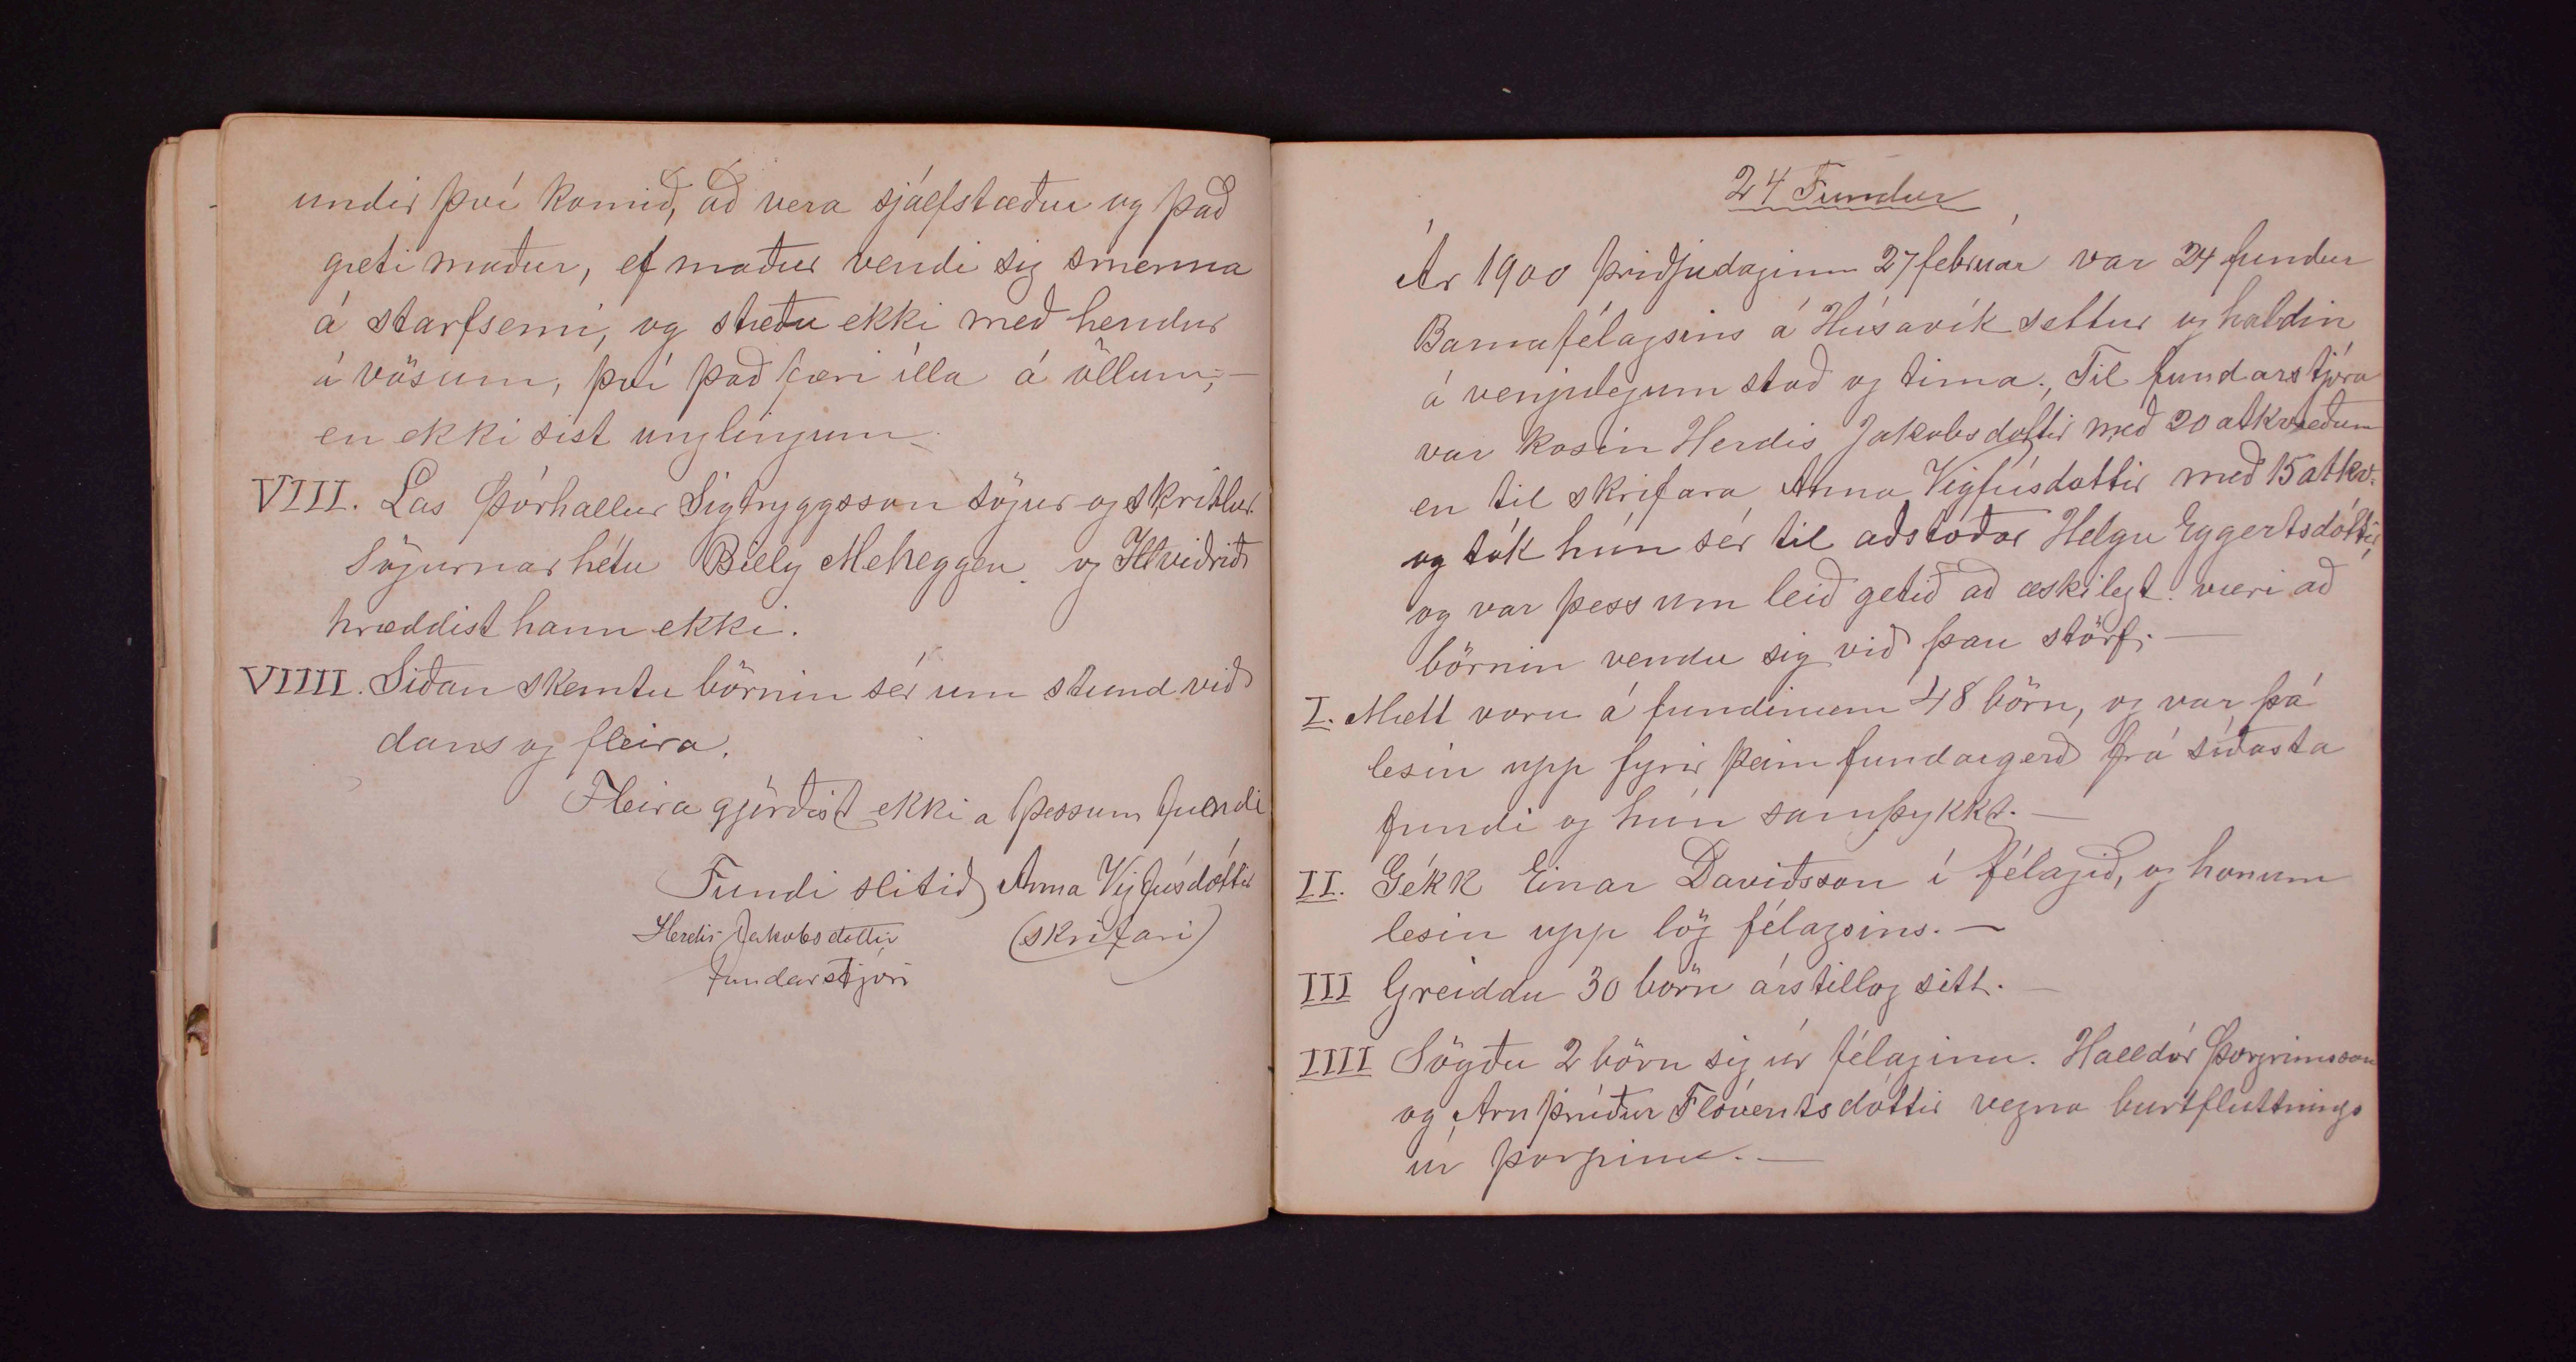 undir því komið, að vera sjálfstæður og það
gæti maður, ef maður vendi sig smemma
á starfsemi, og stæðu ekki með hendur
á vösum, því það færi ílla á öllum; —
en ekki síst unglingum. —
VIII. Las Þórhallur Sigtryggsson sögur og skrítlur.
Sögurnar hétu Billy Meheggen. og Illviðrið
hræddist hann ekki.
VIIII. Siðan skemtu börnin sér um stund við
dans og fleira.
Fleira gjörðist ekki a þessum fundi
Fundi slitið Anna Vigfúsdóttir
Herdis Jakobsdottir (skrifari)
fundarstjóri
24 Fundur
Ár 1900 þriðjudaginn 27 februar var 24 fundur
Barnafélagsins á Húsavík settur og haldin
á venjulegum stað og tima. Til fundarstjóra
var kosin Herdis Jakobsdottir með 20 atkvæðum
en til skrifara Anna Vigfúsdottir með 15 atkv.
og tók hún sér til aðstoðar Helgu Eggertsdóttir,
og var þess um leið getið að æskilegt væri að
börnin vendu sig við þau störf. —
I. Mætt voru á fundinum 48 börn, og var þá
lesin upp fyrir þeim fundargerð frá síðasta
fundi og hún samþykkt. —
II. Gékk Einar Daviðsson í félagið, og honum
lesin upp lög félagsins. —
III Greiddu 30 börn árstillag sitt. —
IIII Sögðu 2 börn sig úr félaginu. Halldór Þorgrimsson
og Arnþrúður Flóventsdóttir vegna burtfluttnings
úr þorpinu. —